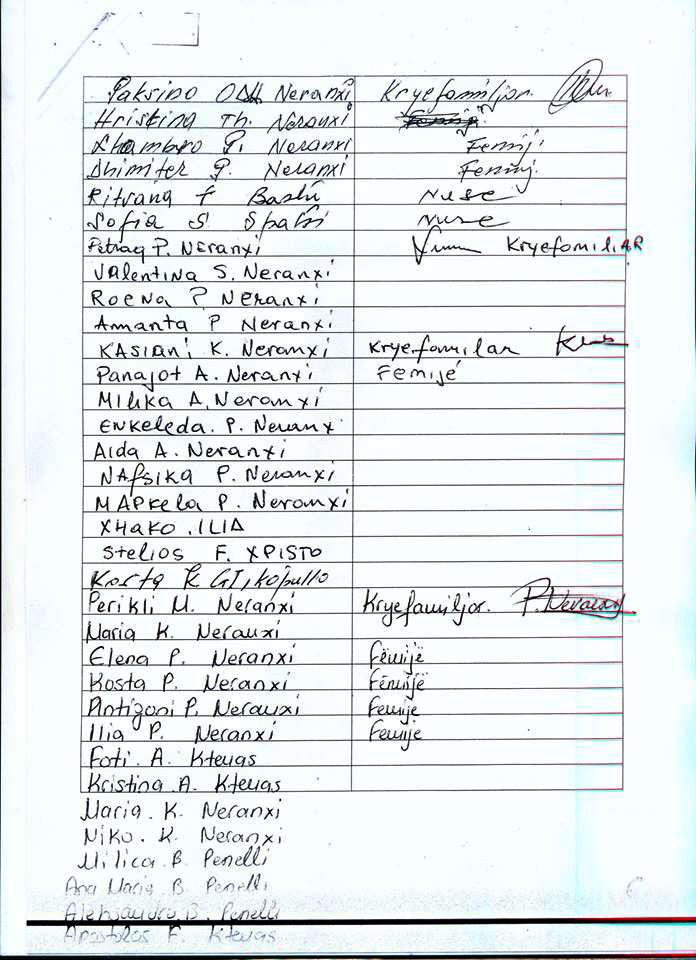 Paksino Dh Neranxi Kryefamiljar.
Hristina Th. Neranxi Femij.
Lhambro P. Neranxi Femij.
Dhimiter P. Neranxi Femij.
Ritvana F Bashi Nuse
Sofia S Spahi Nuse
Petraq P. Neranxi Kryefamiliar
Valentina S. Neranxi
Roena P Neranxi
Amanta P Neranxi
Kasiani K. Neranxi Kryefamilar
Panajot A. Neranxi Femijé
Milika A. Neranxi
Enkeleda. P. Neranx
Aida A. Neranxi
Nafsika P. Neranxi
Mapkela P. Neranxi
Xhako . Ilia
Stelios F. Xpisto
Kosta K
Perikli M. Neranxi Kryefamiljar. P. Neranxi
Maria K. Neranxi
Elena P. Neranxi Fëmijë
Kosta P. Neranxi Fëmijë
Antigoni P. Neranxi Femije
Ilia P. Neranxi Femije
Foti . A. Ktenas
Kristina . A. Ktenas
Maria . K. Neranxi
Niko . K. Neranxi
Milica . B. Penelli
Ana Maria . B. Penelli
Aleksandro . B. Penelli
Apostolas F. Ktenas